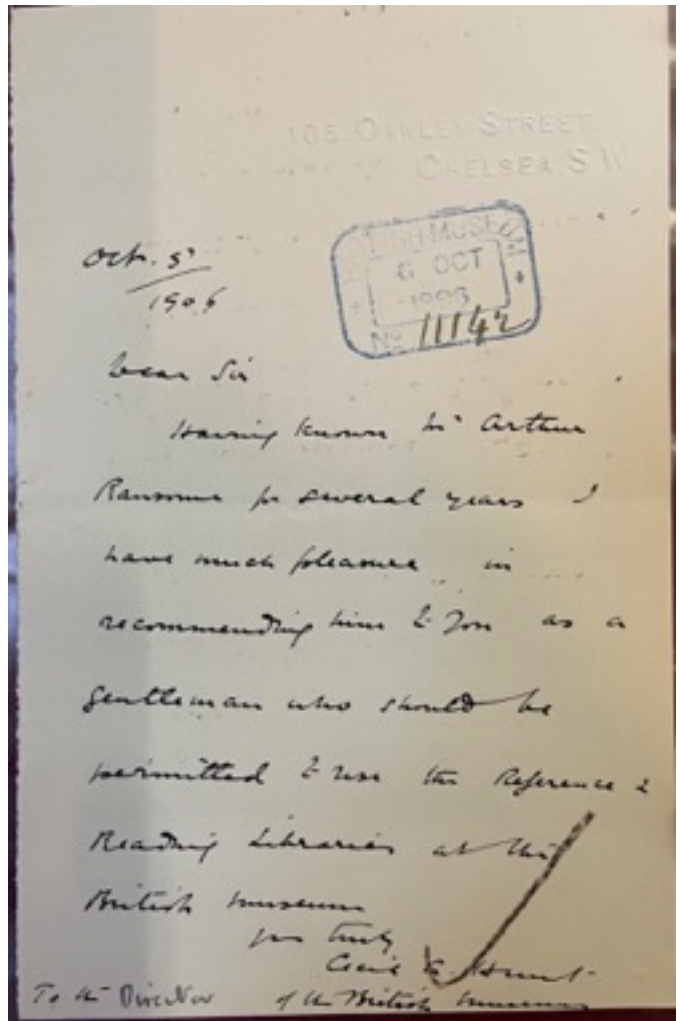 105 OAKLEY STREET,
CHELSEA. S.W.
BRITISH MUSEUM
6 OCT
1906
No 11142
Oct. 5
1906
Dear Sir
Having known Mr Arthur
Ransome for several years I
have much pleasure in
recommending him to you as a
gentleman who should be
permitted to use the Reference &
Reading Libraries at the
British Museum
yrs truly
Cecil Hunt
To the Director of the British Museum